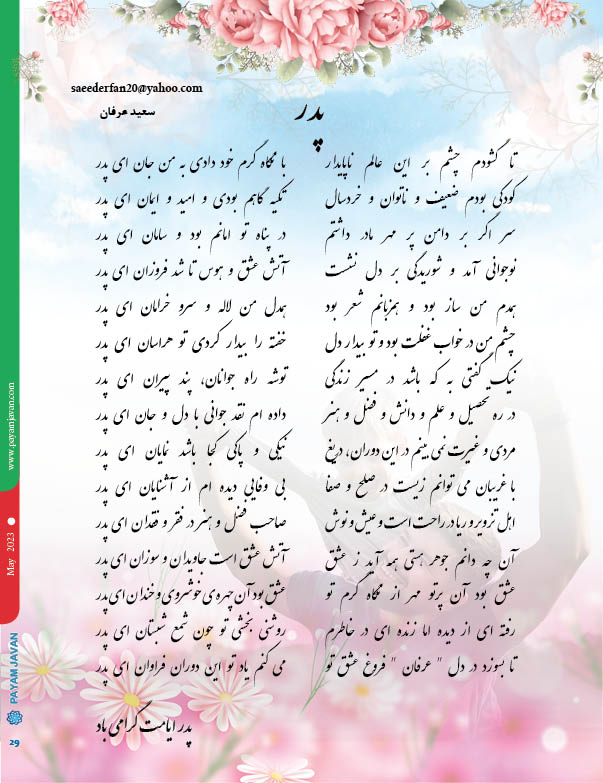 saeederfan20@yahoo.com
سعید عرفان
پدر
تا گشودم چشم بر این عالم ناپایدار
با نگاه گرم خود دادی به من جان ای پدر
کودکی بودم ضعیف و ناتوان و خردسال
تکیه گاهم بودی و امید و ایمان ای پدر
سر اگر بر دامن پر مهر مادر داشتم
در پناه تو امانم بود و سامان ای پدر
نوجوانی آمد و شوریدگی بر دل نشست
آتش عشق و هوس تا شد فروزان ای پدر
همدم من ساز بود و همزبانم شعر بود
همدل من لاله و سرو خرامان ای پدر
چشم من در خواب غفلت بود و تو بیدار دل
خفته را بیدار کردی تو هراسان ای پدر
نیک گفتی به که باشد در مسیر زندگی
توشه راه جوانان، پند پیران ای پدر
در ره تحصیل و علم و دانش و فضل و هنر
داده ام نقد جوانی با دل و جان ای پدر
مردی و غیرت نمی بینم در این دوران، دریغ
نیکی و پاکی کجا باشد نمایان ای پدر
با غریبان می توانم زیست در صلح و صفا
بی وفایی دیده ام از آشنایان ای پدر
اهل تزویر و ریا در راحت است و عیش و نوش
صاحب فضل و هنر در فقر و فقدان ای پدر
آن چه دانم جوهر هستی همه آید ز عشق
آتش عشق است جاویدان و سوزان ای پدر
عشق بود آن پرتو مهر از نگاه گرم تو
عشق بود آن چهره‌ی خوشروی و خندان ای پدر
رفته ای از دیده اما زنده ای در خاطرم
روشنی بخشی تو چون شمع شبستان ای پدر
تا بسوزد در دل " عرفان " فروغ عشق تو
می کنم یاد تو این دوران فراوان ای پدر
پدر ایامت گرامی باد
www.payamjavan.com
May 2023
PAYAM JAVAN
29